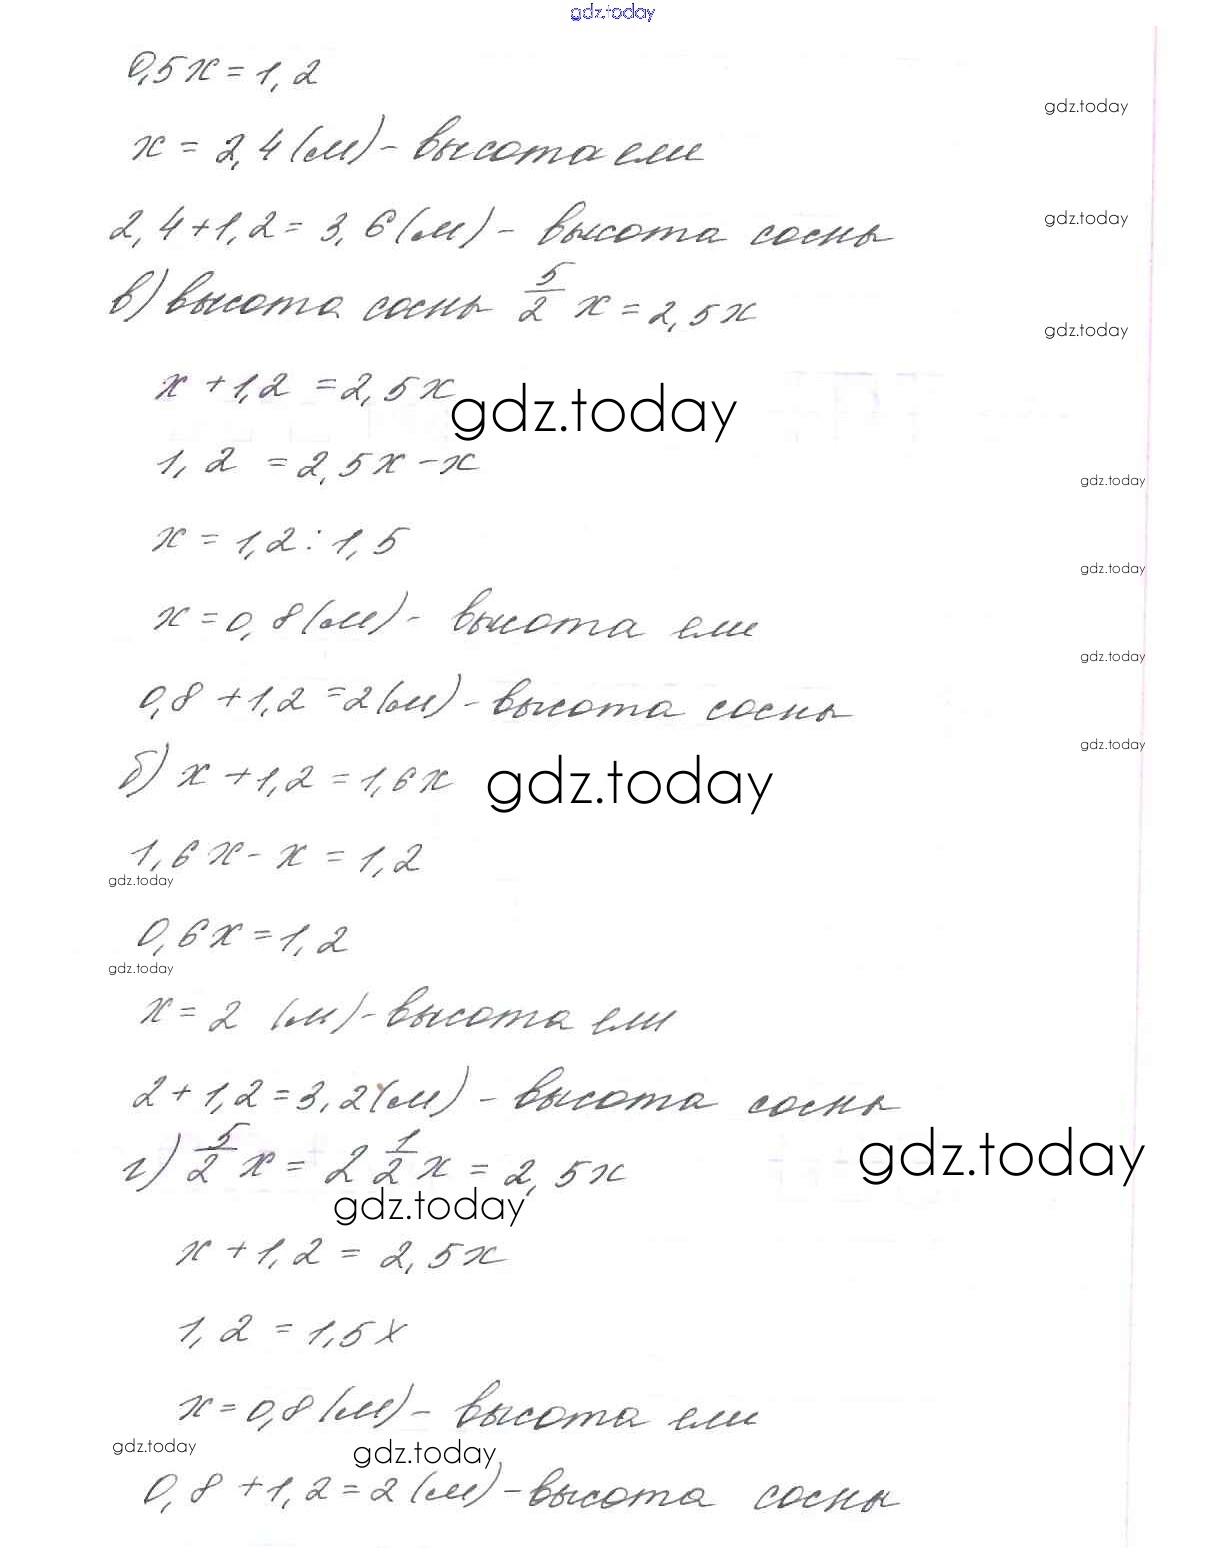 gdz.today
0,5x = 1,2
gdz.today
x = 2,4 (м) - высота ели
2,4 + 1,2 = 3,6 (м) - высота сосны
gdz.today
в) высота сосны 5/2 x = 2,5x
gdz.today
x + 1,2 = 2,5x
gdz.today
1,2 = 2,5x - x
gdz.today
x = 1,2 : 1,5
gdz.today
x = 0,8 (м) - высота ели
gdz.today
0,8 + 1,2 = 2 (м) - высота сосны
gdz.today
б) x + 1,2 = 1,6x
gdz.today
1,6x - x = 1,2
gdz.today
0,6x = 1,2
gdz.today
x = 2 (м) - высота ели
2 + 1,2 = 3,2 (м) - высота сосны
г) 5/2 x = 2 1/2 x = 2,5x
gdz.today
gdz.today
x + 1,2 = 2,5x
1,2 = 1,5x
x = 0,8 (м) - высота ели
gdz.today
gdz.today
0,8 + 1,2 = 2 (м) - высота сосны